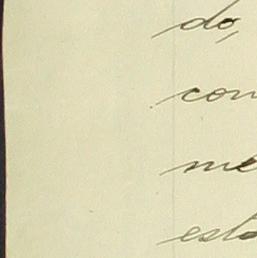 do,
con
me
esta